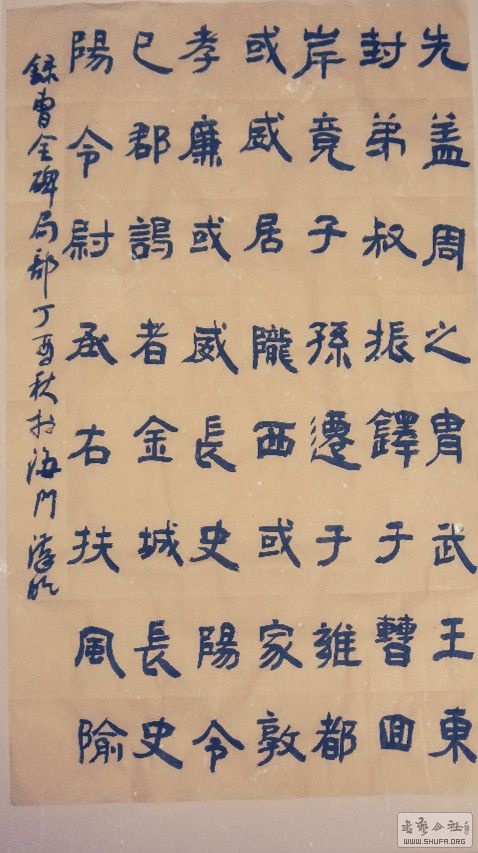 先盖周之胄武王東
封弟叔振鐸于曹囬
岸竟子孫遷于雍都
或威居隴西或家敦
孝廉或威長史陽令
巳郡謁者金城長史
陽令尉丞右扶風隃
錄曹全碑局部丁酉秋於海門
書藝公社
WWW.SHUFA.ORG